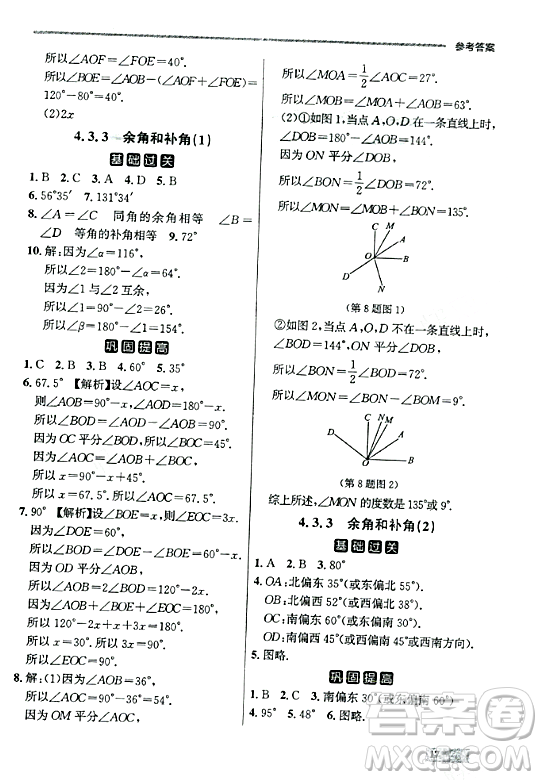 参考答案
所以∠AOF=∠FOE=40°.
所以∠BOE=∠AOB-(∠AOF+∠FOE)=
120°-80°=40°.
(2)2x
4.3.3 余角和补角(1)
基础过关
1. B 2. C 3. A 4. D 5. B
6. 56°35′ 7. 131°34′
8. ∠A=∠C 同角的余角相等 ∠B=
∠D 等角的补角相等 9. 72°
10. 解:因为∠α=116°,
所以∠2=180°-∠α=64°.
因为∠1与∠2互余,
所以∠1=90°-∠2=26°.
所以∠β=180°-∠1=154°.
巩固提高
1. C 2. B 3. B 4. 60° 5. 35°
6. 67.5° 【解析】设∠AOC=x,
则∠AOB=90°-x,∠BOC=180°-x.
因为OC平分∠BOF,
所以∠AOC=∠AOB+∠BOC.
所以x=90°-x+180°-x.
所以x=67.5°. 所以∠AOC=67.5°.
7. 90° 【解析】设∠BOE=x,
因为∠DOE=60°,
所以∠BOD=∠DOE-∠BOE=60°-x.
因为OD平分∠AOB,
所以∠AOB=2∠BOD=120°-2x.
因为∠BOC=180°-∠AOB=3x,
所以120°-2x+x+3x=180°.
所以x=30°. 所以3x=90°.
所以∠EOC=90°.
8. 解:(1)因为∠AOB=36°,
所以∠AOC=90°-36°=54°.
因为OM平分∠AOC,
所以∠MOA=1/2∠AOC=27°.
所以∠BOM=∠MOA+∠AOB=63°.
(2)①如图1,当点A,O,D在一条直线上时,
∠BOD=180°-∠AOB=144°.
因为ON平分∠BOD,
所以∠BON=1/2∠BOD=72°.
所以∠MON=∠BOM+∠BON=135°.
C
M
A
O
B
D
N
(第8题图1)
②如图2,当点A,O,D不在一条直线上时,
∠BOD=180°-∠AOB=144°,
所以∠BON=1/2∠BOD=72°.
所以∠MON=∠BON-∠BOM=9°.
C
N
M
A
D
O
B
(第8题图2)
综上所述,∠MON的度数是135°或9°.
4.3.3 余角和补角(2)
基础过关
1. A 2. B 3. 80°
4. OA:北偏东35°(或东偏北55°)
OB:北偏西52°(或西偏北38°)
OC:南偏西45°(或西偏南45°或西南方向)
5. 图略.
巩固提高
1. B 2. C 3. 南偏东30°(或东偏南60°)
4. 95° 5. 48° 6. 图略.
答案圈